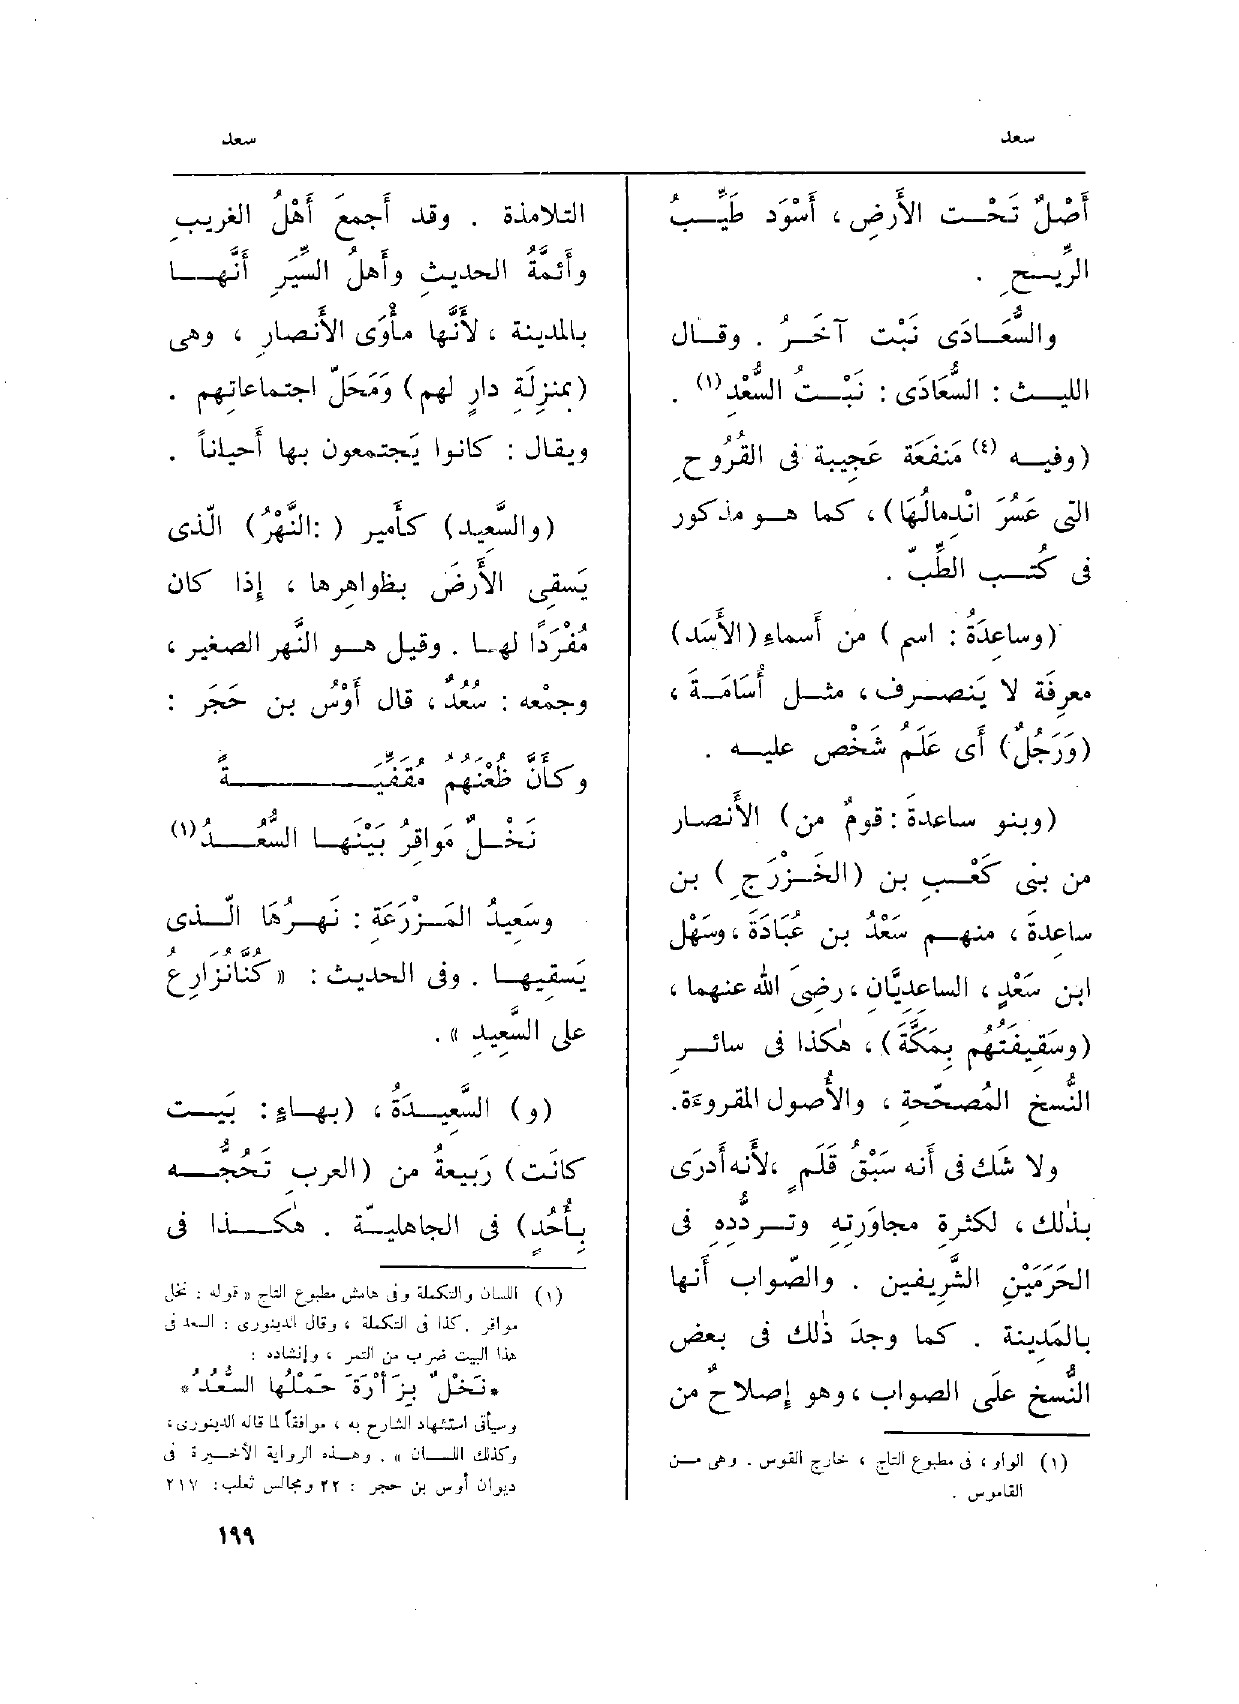 سعد
سعد
أَصْلٌ تَحْـت الأَرضِ، أَسْوَد طَيِّـبُ
الرِّيـحِ .
والسُّعَـادَى نَبْت آخَـرُ . وقَـال
الليـث : السُّعَادَى : نَبْـتُ السُّعْدِ (١) .
(وفيـه (٤) مَنفَعَة عَجِيبة فى القُرُوحِ
التى عَسُرَ انْدِمالُهَا)، كما هـو مذكور
فى كُتـب الطِّبّ .
(وساعِدَةُ : اسم ) من أَسماءِ (الأَسَد)
معرِفَة لا يَنصـرف، مثـل أُسَامَـةَ،
(وَرَجُلٌ) أَى عَلَمُ شَخْص عليـه .
(وبنو ساعدةَ : قومٌ من) الأَنصار
من بنى كَعْـب بن (الخَـزْرَجِ ) بن
ساعِدةَ، منهـم سَعْدُ بن عُبَادَةَ، وسَهْل
ابن سَعْدٍ، الساعِدِيَّانِ، رضِىَ الله عنهما،
(وسَقِيفَتُهُم بِمَكَّةَ)، هٰكذا فى سائـرِ
النُّسخ المُصحّحةِ، والأُصول المقروءَة.
ولا شَك فى أَنه سَبْقُ قَلَمٍ، لأَنه أَدرَى
بذٰلك، لكثرةِ مجاوَرتِهِ وتـردُّدِهِ فى
الحَرَمَيْنِ الشَّرِيفين . والصَّواب أَنها
بالمَدِينة . كما وجدَ ذٰلك فى بعض
النُّسخ على الصواب، وهو إِصلاحٌ من
(١) الواو، فى مطبوع التاج، خارج القوس . وهى مـن
القاموس .
التلامذة . وقد أَجمعَ أَهْلُ الغريبِ
وأَئمَّةُ الحديثِ وأَهلُ السِّيَرِ أَنَّهـا
بالمدينة، لأَنَّها مأْوَى الأَنصارِ، وهى
(بمنزِلَةِ دارٍ لهم) وَمَحَلّ اجتماعاتِهم .
ويقال : كانوا يَجتمعون بها أَحياناً .
(والسَّعِيد) كأَمير ( :النَّهْرُ) الّذى
يَسقِى الأَرضَ بظواهِرها، إِذا كان
مُفْرَدًا لهـا . وقيل هـو النَّهر الصغير،
وجمْعه : سُعُدٌ، قال أَوْسُ بن حَجَر :
وكأَنَّ ظُعْنَهُم مُقَفِّيَـــةً
نَخْـلٌ مَواقِرُ بَيْنَهـا السُّعُـدُ (١)
وسَعِيدُ المَـزْرَعَةِ : نَهـرُهَا الّـذى
يَسقِيهـا . وفى الحديث : « كُنَّا نُزارِعُ
على السَّعِيدِ » .
(و) السَّعِيـدَةُ، (بهـاءٍ : بَيْـت
كانَت) رَبيعةُ من (العربِ تَحُجُّـه
بأُحُدٍ) فى الجاهليّـة . هٰكـذا فى
(١) اللسان والتكملة وفى هامش مطبوع التاج « قوله : نخل
مواقر . كذا فى التكملة، وقال الدينورى : السعد فى
هذا البيت ضرب من التمر، وإنشاده :
*نَخْلٌ بِزَأْرَةَ حَمْلُها السُّعُدُ*
وسيأتى استشهاد الشارح به، موافقاً لما قاله الدينورى،
وكذلك اللسـان » . وهـذه الرواية الأخيـرة فى
ديوان أوس بن حجر : ٢٢ ومجالس ثعلب : ٢١٧
١٩٩